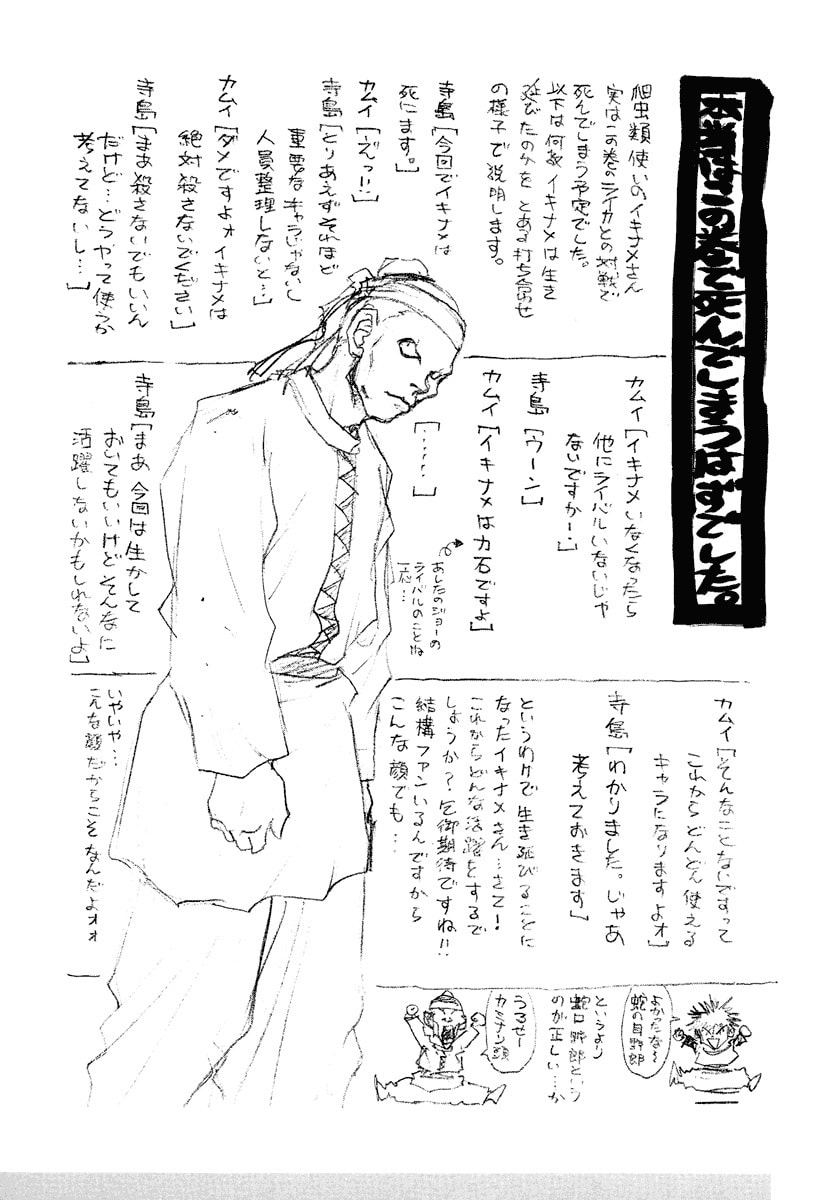 本当はこの巻で死んでしまうはずでした。
爬虫類使いのイキナメさん
実はこの巻のライカとの対戦で
死んでしまう予定でした。
以下は何故イキナメは生き
延びたのかを とある打ち合せ
の様子で説明します。
寺島「今回でイキナメは
死にます。」
カムイ「えっ!!」
寺島「とりあえずそれほど
重要なキャラじゃないし
人員整理しないと…」
カムイ「ダメですよォ イキナメは
絶対殺さないでください」
寺島「まあ殺さないでもいいん
だけど…どうやって使うか
考えてないし…」
カムイ「イキナメいなくなったら
他にライバルいないじゃ
ないですかー」
寺島「ウーン」
カムイ「イキナメは力石ですよ」
あしたのジョーの
ライバルのことね
一応…
「……」
寺島「まあ 今回は生かして
おいてもいいけど そんなに
活躍しないかもしれないよ」
カムイ「そんなことないですって
これからどんどん使える
キャラになりますよォ」
寺島「わかりました。じゃあ
考えておきます」
というわけで 生き延びることに
なったイキナメさん…さて!
これからどんな活躍をするで
しょうか? 乞御期待ですね!!
結構ファンいるんですから
こんな顔でも…
いやいや…
こんな顔だからこそ なんだよォォ
よかったな〜
蛇の目野郎
というより
蛇口野郎という
のが正しい…か
うるせー
カミナリ頭